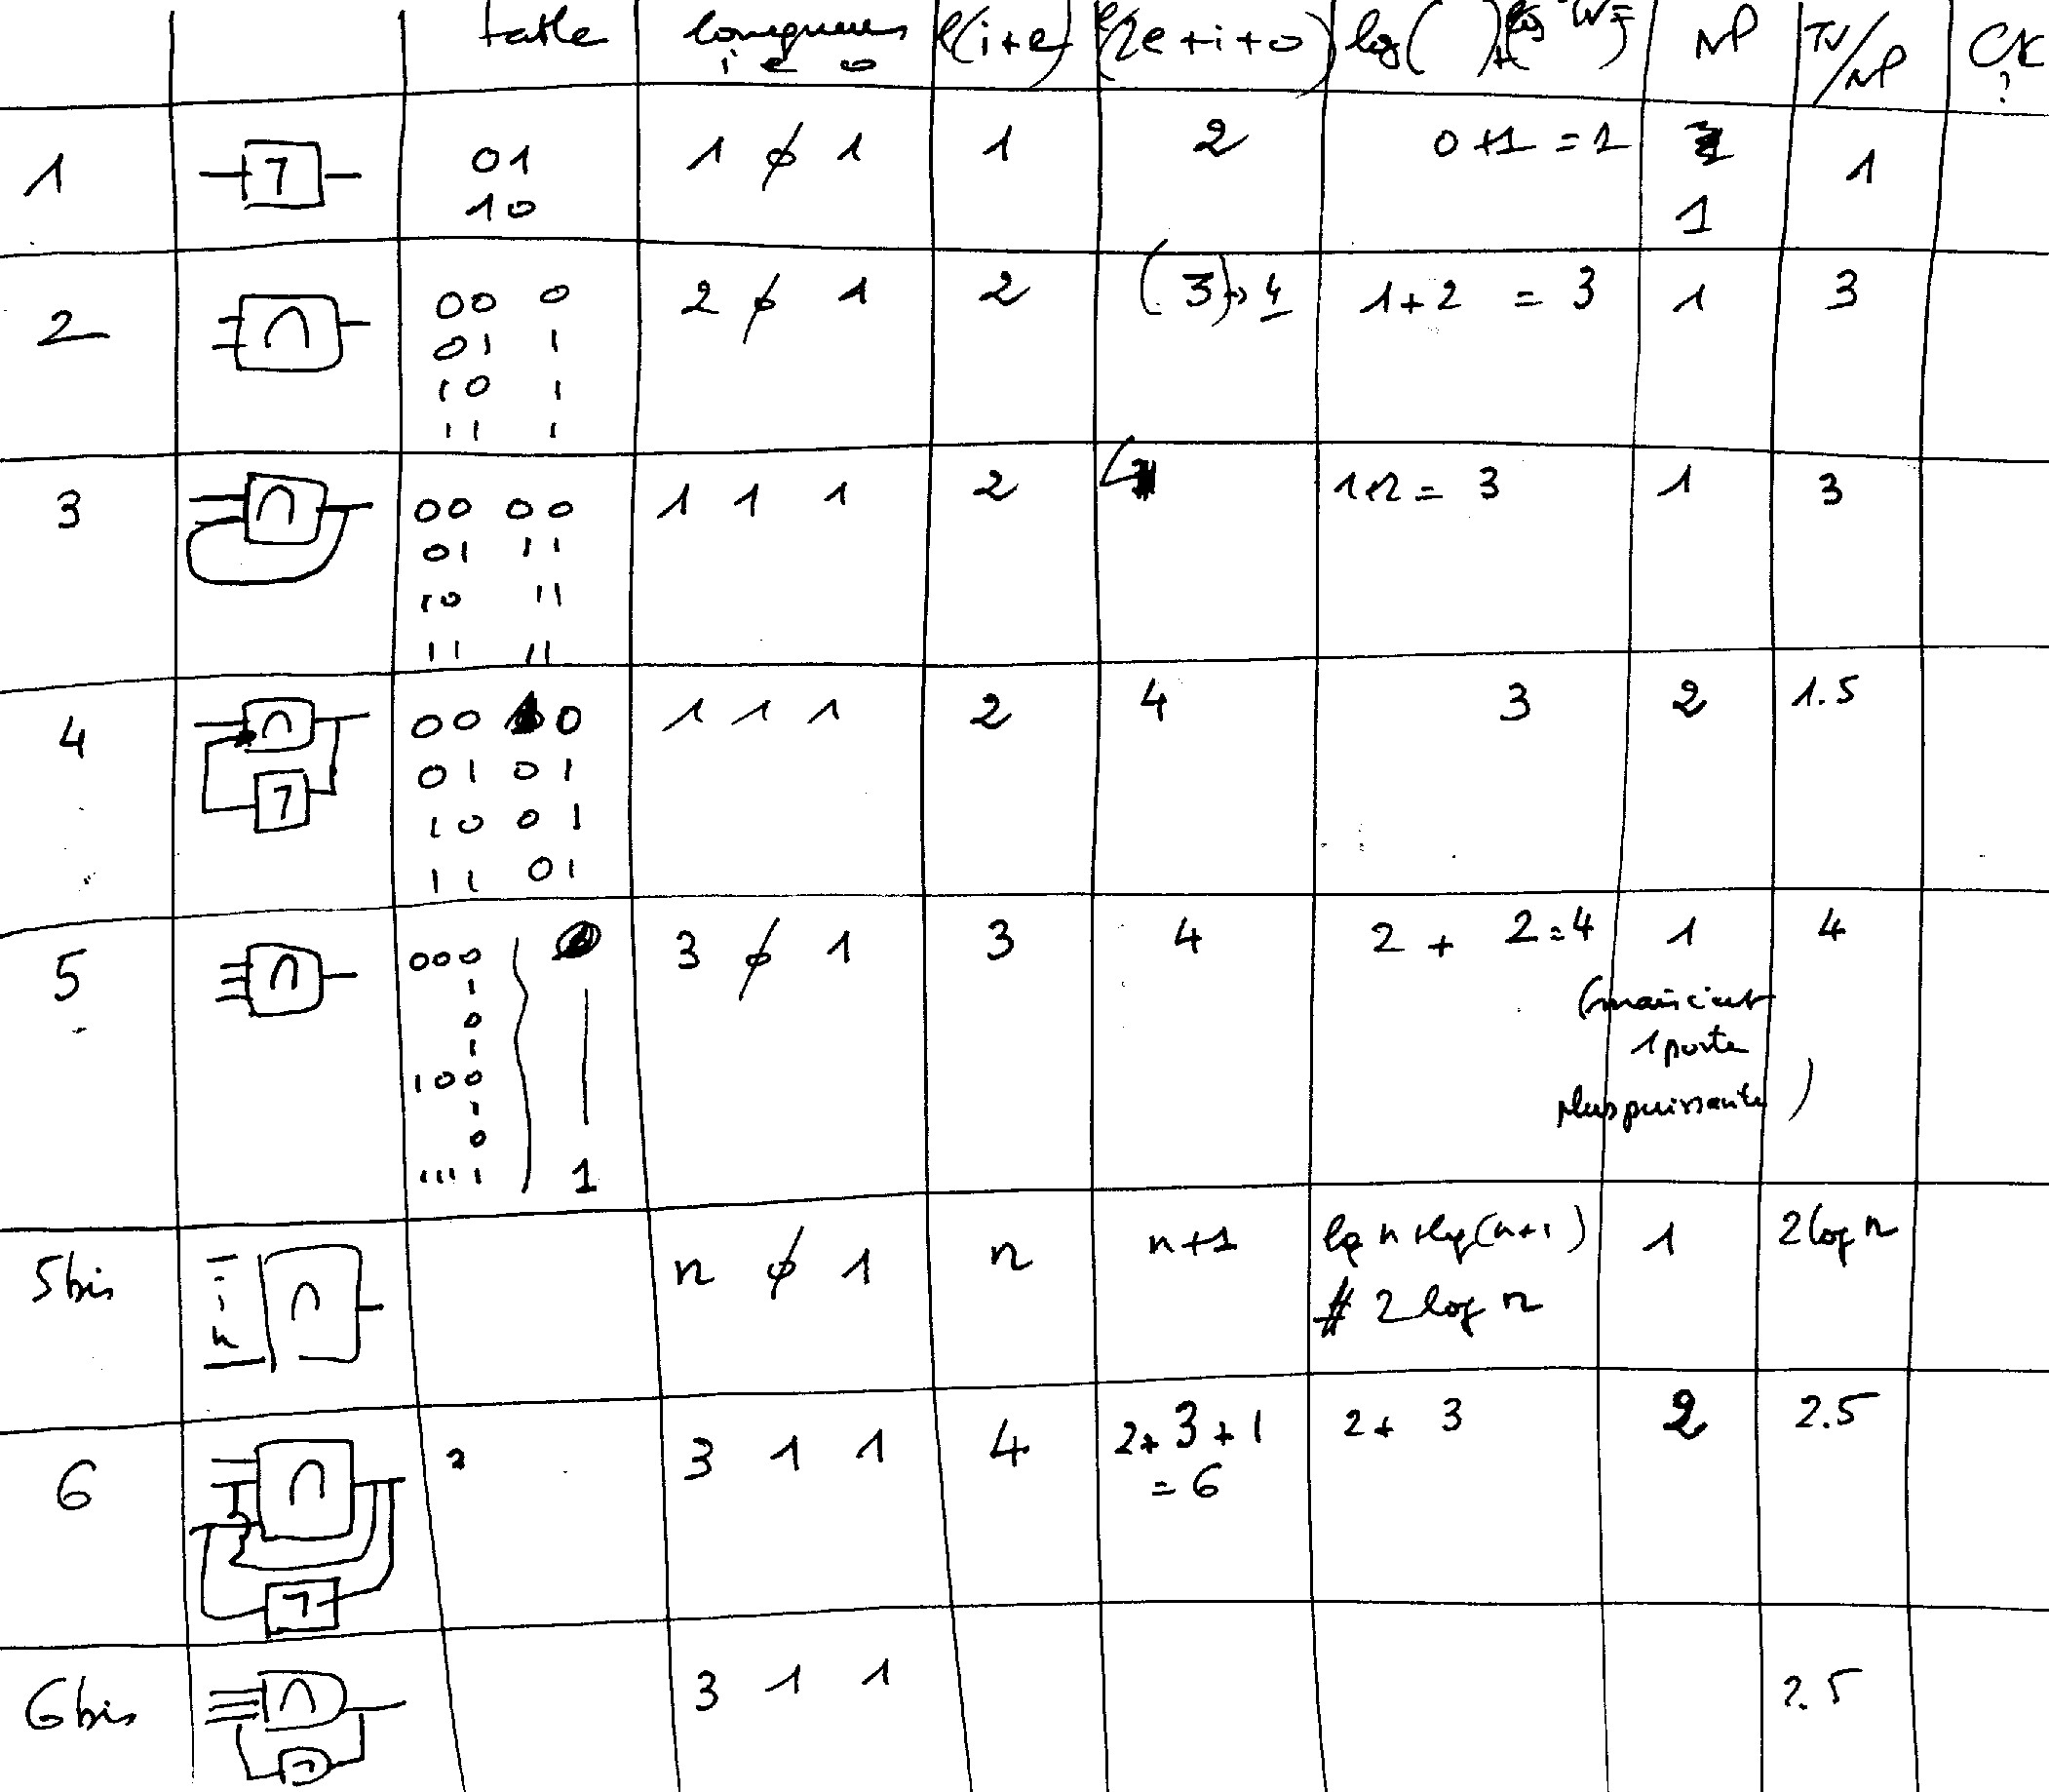 table longueurs l(i+e) l(2e+i+o) log( )+ NP TV/NP CK
i e o ?
1 7 01 1 ϕ 1 1 2 0+1=1 1 1
10 1
2 ∩ 00 0 2 ϕ 1 2 (3)→4 1+2 = 3 1 3
01 1
10 1
11 1
3 ∩ 00 00 1 1 1 2 1+2 = 3 1 3
01 11
10 11
11 11
4 ∩ 00 10 1 1 1 2 4 3 2 1.5
7 01 01
10 01
11 01
5 ∩ 000 3 ϕ 1 3 4 2 + 2=4 1 4
1
0
1
100
1
0
1111 1
(mais c'est
1 porte
plus puissante)
5bis 1 i n ∩ n ϕ 1 n n+1 log n + log(n+1) 1 2log n
# 2 log n
6 ∩ 7 ? 3 1 1 4 2+3+1 2+ 3 2 2.5
= 6
6bis ∩ 7 3 1 1 2.5